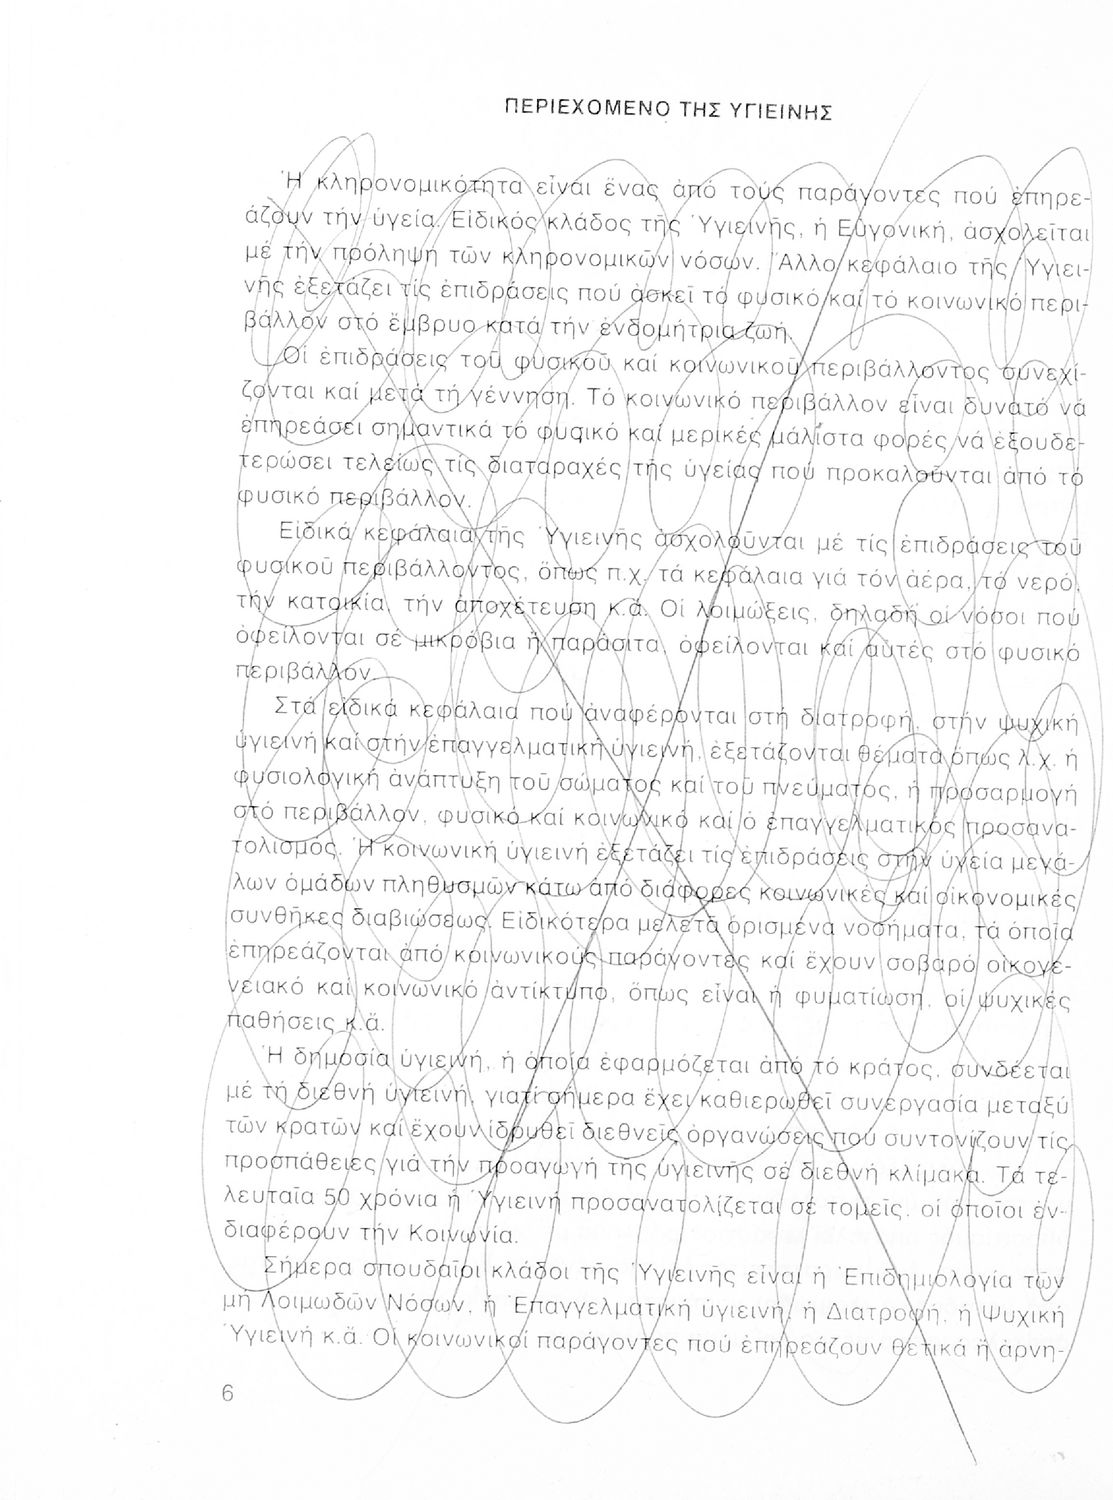 ΠΕΡΙΕΧΟΜΕΝΟ ΤΗΣ ΥΓΙΕΙΝΗΣ
Ἡ κληρονομικότητα εἶναι ἕνας ἀπό τούς παράγοντες πού ἐπηρε-
άζουν τήν ὑγεία. Εἰδικός κλάδος τῆς Ὑγιεινῆς, ἡ Εὐγονική, ἀσχολεῖται
μέ τήν πρόληψη τῶν κληρονομικῶν νόσων. Ἄλλο κεφάλαιο τῆς Ὑγιει-
νῆς ἐξετάζει τίς ἐπιδράσεις πού ἀσκεῖ τό φυσικό καί τό κοινωνικό περι-
βάλλον στό ἔμβρυο κατά τήν ἐνδομήτρια ζωή.
Οἱ ἐπιδράσεις τοῦ φυσικοῦ καί κοινωνικοῦ περιβάλλοντος συνεχί-
ζονται καί μετά τή γέννηση. Τό κοινωνικό περιβάλλον εἶναι δυνατό νά
ἐπηρεάσει σημαντικά τό φυσικό καί μερικές μάλιστα φορές νά ἐξουδε-
τερώσει τελείως τίς διαταραχές τῆς ὑγείας πού προκαλοῦνται ἀπό τό
φυσικό περιβάλλον.
Εἰδικά κεφάλαια τῆς Ὑγιεινῆς ἀσχολοῦνται μέ τίς ἐπιδράσεις τοῦ
φυσικοῦ περιβάλλοντος, ὅπως π.χ. τά κεφάλαια γιά τόν ἀέρα, τό νερό,
τήν κατοικία, τήν ἀποχέτευση κ.ἄ. Οἱ λοιμώξεις, δηλαδή οἱ νόσοι πού
ὀφείλονται σέ μικρόβια ἤ παράσιτα, ὀφείλονται καί αὐτές στό φυσικό
περιβάλλον.
Στά εἰδικά κεφάλαια πού ἀναφέρονται στή διατροφή, στήν ψυχική
ὑγιεινή καί στήν ἐπαγγελματική ὑγιεινή, ἐξετάζονται θέματα ὅπως λ.χ. ἡ
φυσιολογική ἀνάπτυξη τοῦ σώματος καί τοῦ πνεύματος, ἡ προσαρμογή
στό περιβάλλον, φυσικό καί κοινωνικό καί ὁ ἐπαγγελματικός προσανα-
τολισμός. Ἡ κοινωνική ὑγιεινή ἐξετάζει τίς ἐπιδράσεις στήν ὑγεία μεγά-
λων ὁμάδων πληθυσμῶν κάτω ἀπό διάφορες κοινωνικές καί οἰκονομικές
συνθῆκες διαβιώσεως. Εἰδικότερα μελετᾶ ὁρισμένα νοσήματα, τά ὁποῖα
ἐπηρεάζονται ἀπό κοινωνικούς παράγοντες καί ἔχουν σοβαρό οἰκογε-
νειακό καί κοινωνικό ἀντίκτυπο, ὅπως εἶναι ἡ φυματίωση, οἱ ψυχικές
παθήσεις κ.ἄ.
Ἡ δημοσία ὑγιεινή, ἡ ὁποία ἐφαρμόζεται ἀπό τό κράτος, συνδέεται
μέ τή διεθνή ὑγιεινή, γιατί σήμερα ἔχει καθιερωθεῖ συνεργασία μεταξύ
τῶν κρατῶν καί ἔχουν ἱδρυθεῖ διεθνεῖς ὀργανώσεις πού συντονίζουν τίς
προσπάθειες γιά τήν προαγωγή τῆς ὑγιεινῆς σέ διεθνή κλίμακα. Τά τε-
λευταῖα 50 χρόνια ἡ Ὑγιεινή προσανατολίζεται σέ τομεῖς, οἱ ὁποῖοι ἐν-
διαφέρουν τήν Κοινωνία.
Σήμερα σπουδαῖοι κλάδοι τῆς Ὑγιεινῆς εἶναι ἡ Ἐπιδημιολογία τῶν
μή Λοιμωδῶν Νόσων, ἡ Ἐπαγγελματική ὑγιεινή, ἡ Διατροφή, ἡ Ψυχική
Ὑγιεινή κ.ἄ. Οἱ κοινωνικοί παράγοντες πού ἐπηρεάζουν θετικά ἤ ἀρνη-
6